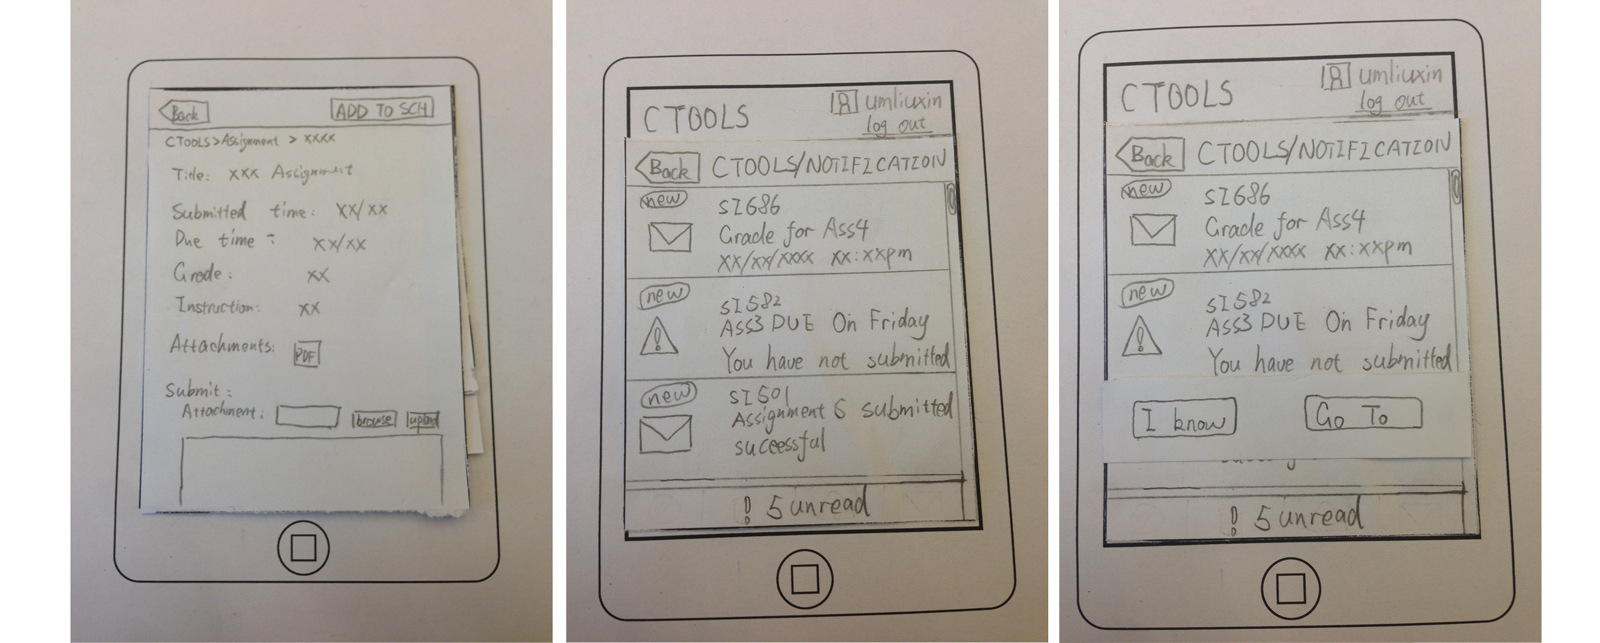 Back
ADD TO SCH
CTOOLS > Assignment > XXXX
Title: XXX Assignment
Submitted time: XX/XX
Due time: XX/XX
Grade: XX
Instruction: XX
Attachments: PDF
Submit:
Attachment: browse upload
CTOOLS
umliuxin
log out
Back CTOOLS/NOTIFICATION
new
SI686
Grade for Ass4
XX/XX/XXXX XX:XXpm
new
SI582
ASS3 DUE On Friday
You have not submitted
new
SI501
Assignment 6 submitted
sucessful
! 5 unread
CTOOLS
umliuxin
log out
Back CTOOLS/NOTIFICATION
new
SI686
Grade for Ass4
XX/XX/XXXX XX:XXpm
new
SI582
ASS3 DUE On Friday
You have not submitted
I know
Go To
! 5 unread